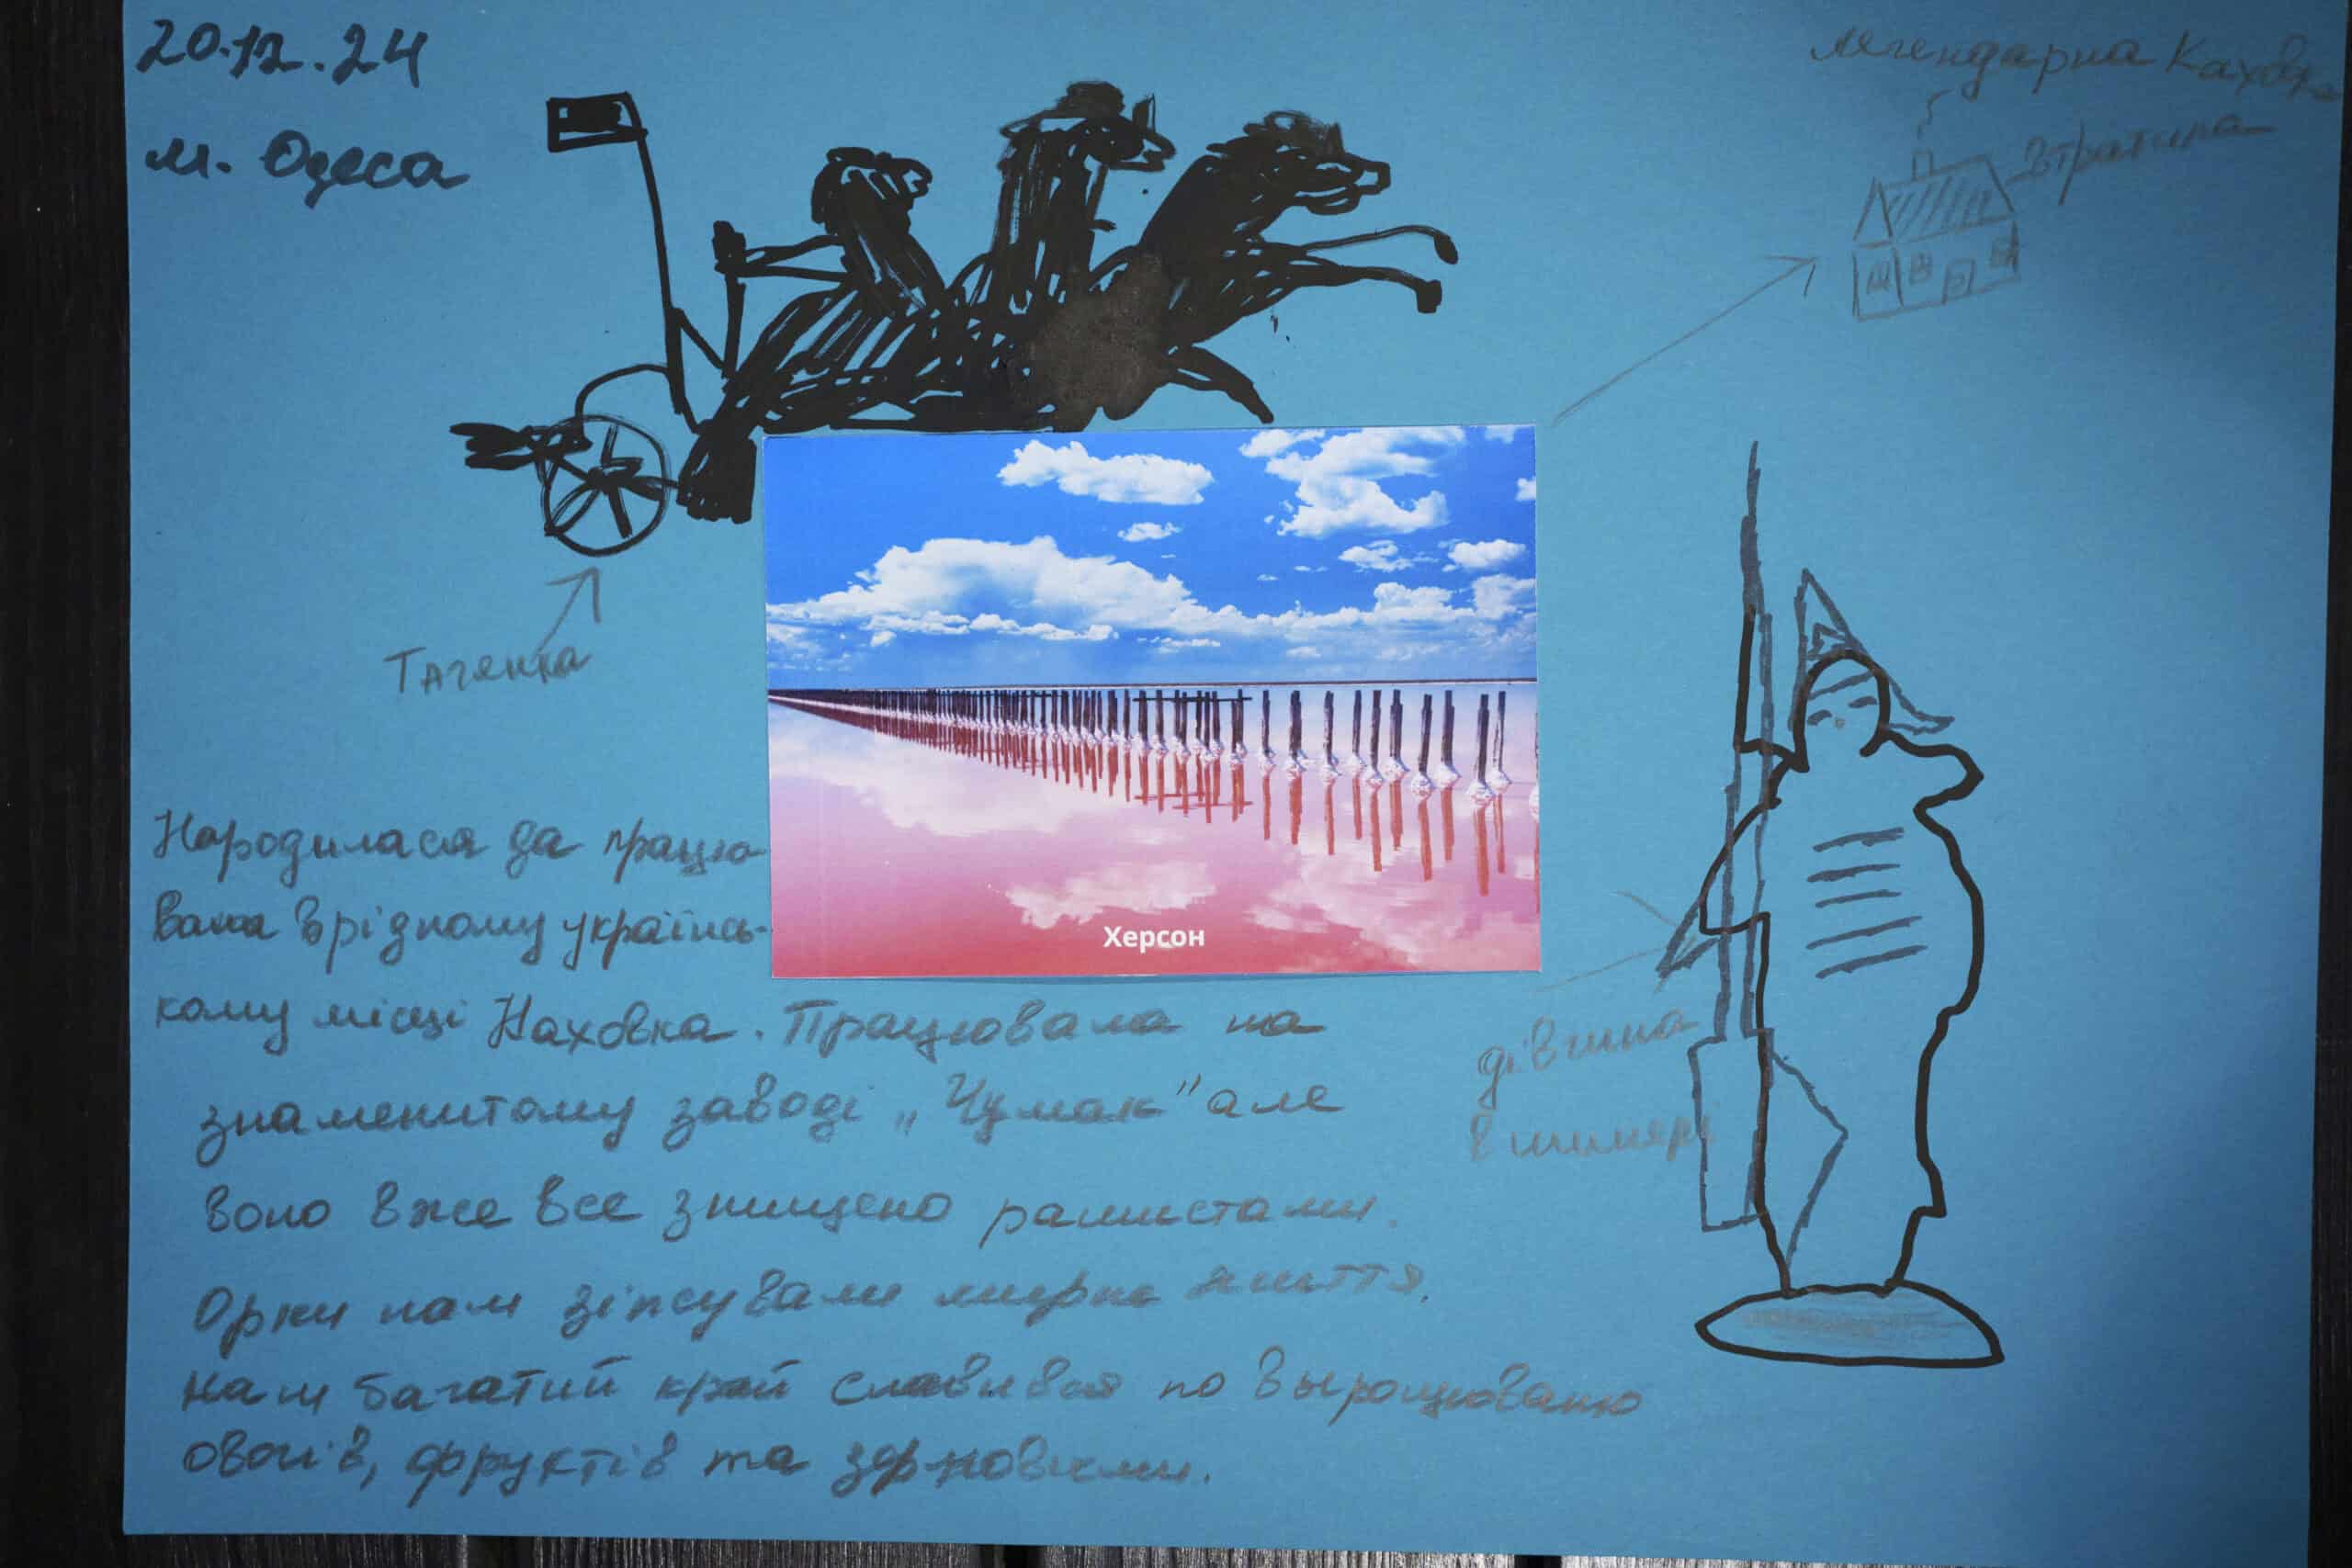 20.12.24
м. Одеса
легендарна Каховка
втратила
Тачанка
Херсон
дівчина
в шинелі
Народилася да працю-
вала в рідному українсь-
кому місці Каховка. Працювала на
знаменитому заводі „Чумак" але
воно вже все знищено рашистами.
Орки нам зіпсували мирне життя.
Наш багатий край славився по вырощюваню
овочів, фруктів та зерновими.